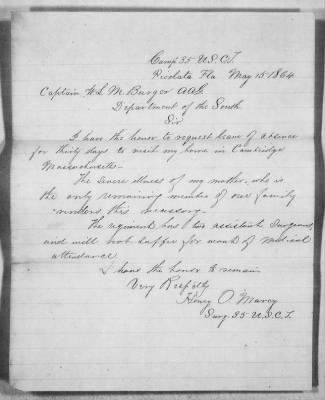 Camp 35 U.S.C.T.
Picolata Fla May 15 1864
Captain W. L. M. Burger AAG
Department of the South
Sir
I have the honor to request leave of absence
for thirty days to visit my home in Cambridge
Massachusetts—
The severe illness of my mother, who is
the only remaining member of our family
renders this necessary.
The regiment has two assistant Surgeons,
and will not suffer for want of medical
attendance
I have the honor to remain
Very Respctly
Henry O. Marcy
Surg. 35 U.S.C.T.